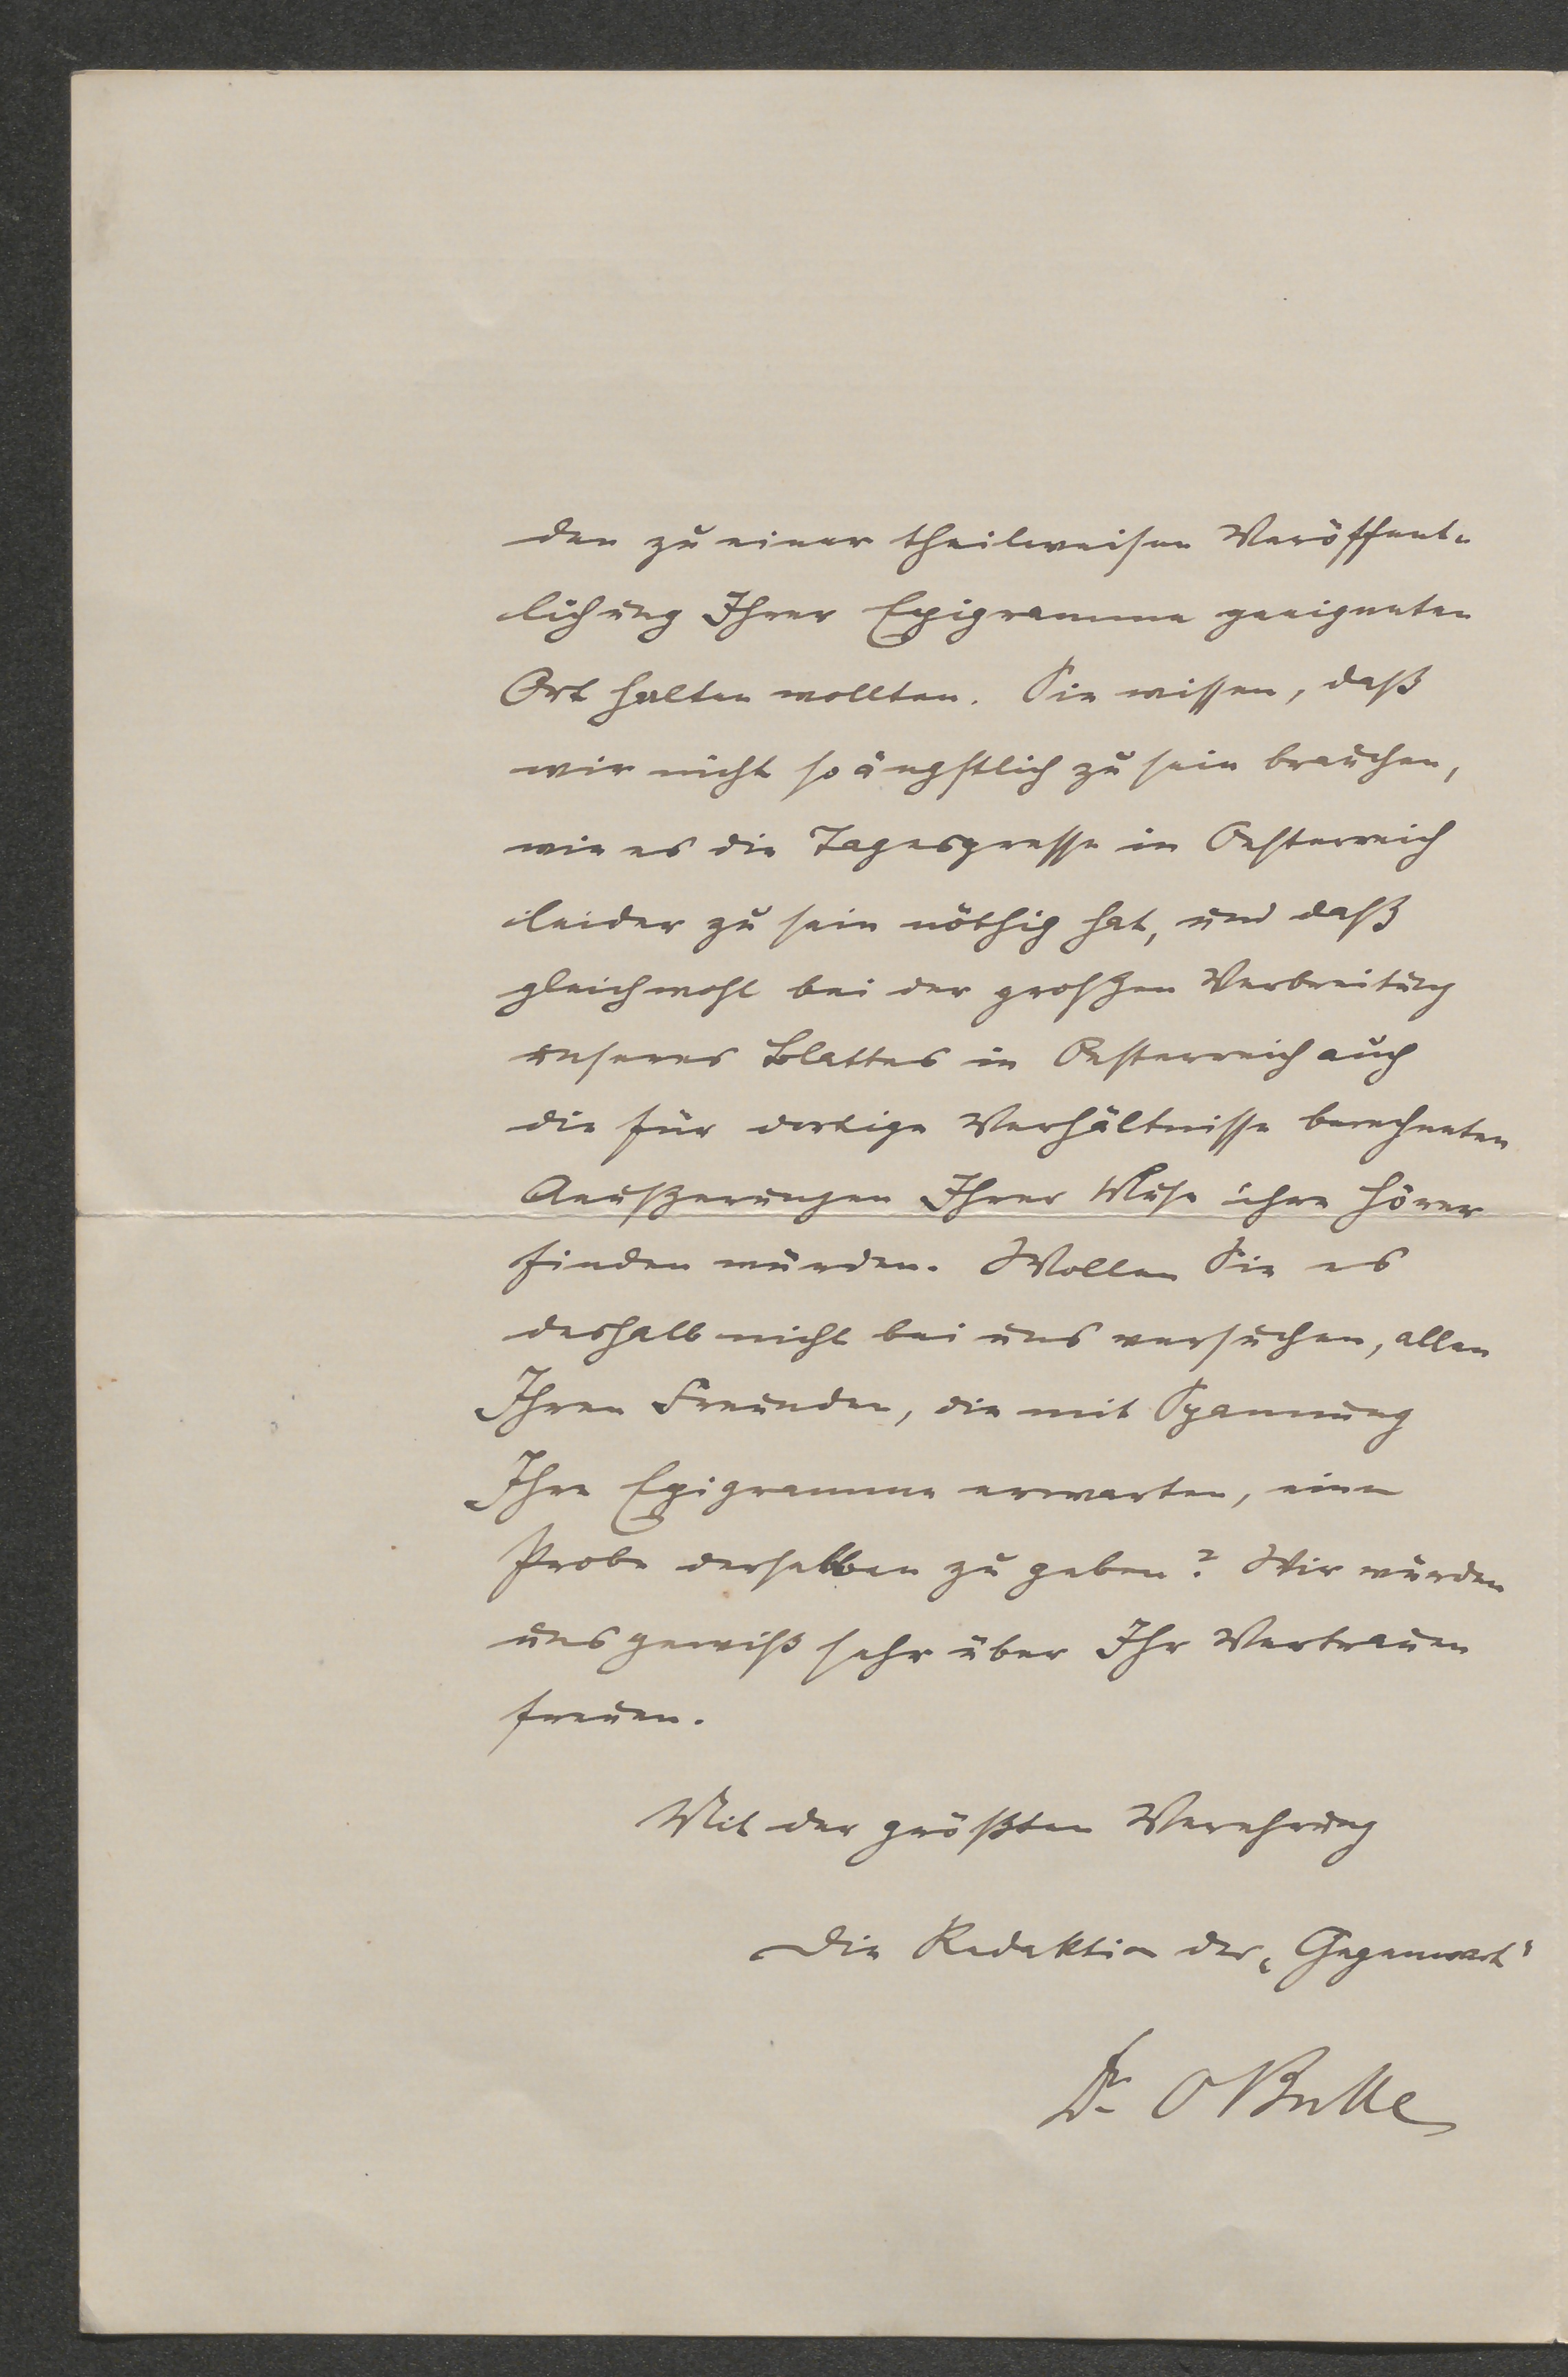 den zu einer theilweisen Veröffent-
lichung Ihrer Epigramme geeigneten
Ort halten wollten. Sie wissen, daß
wir nicht so ängstlich zu sein brauchen,
wie es die Tagespresse in Oesterreich
leider zu sein nöthig hat, und daß
gleichwohl bei der großen Verbreitung
unseres Blattes in Oesterreich auch
die für dortige Verhältnisse berechneten
Aeußerungen Ihrer Muse ihre Hörer
finden würden. Wollen Sie es
deshalb nicht bei uns versuchen, allen
Ihren Freunden, die mit Spannung
Ihre Epigramme erwarten, eine
Probe derselben zu geben? Wir würden
uns gewiß sehr über Ihr Vertrauen
freuen.
Mit der größten Verehrung
Die Redaktion der „Gegenwart“
Dr. O Bulle